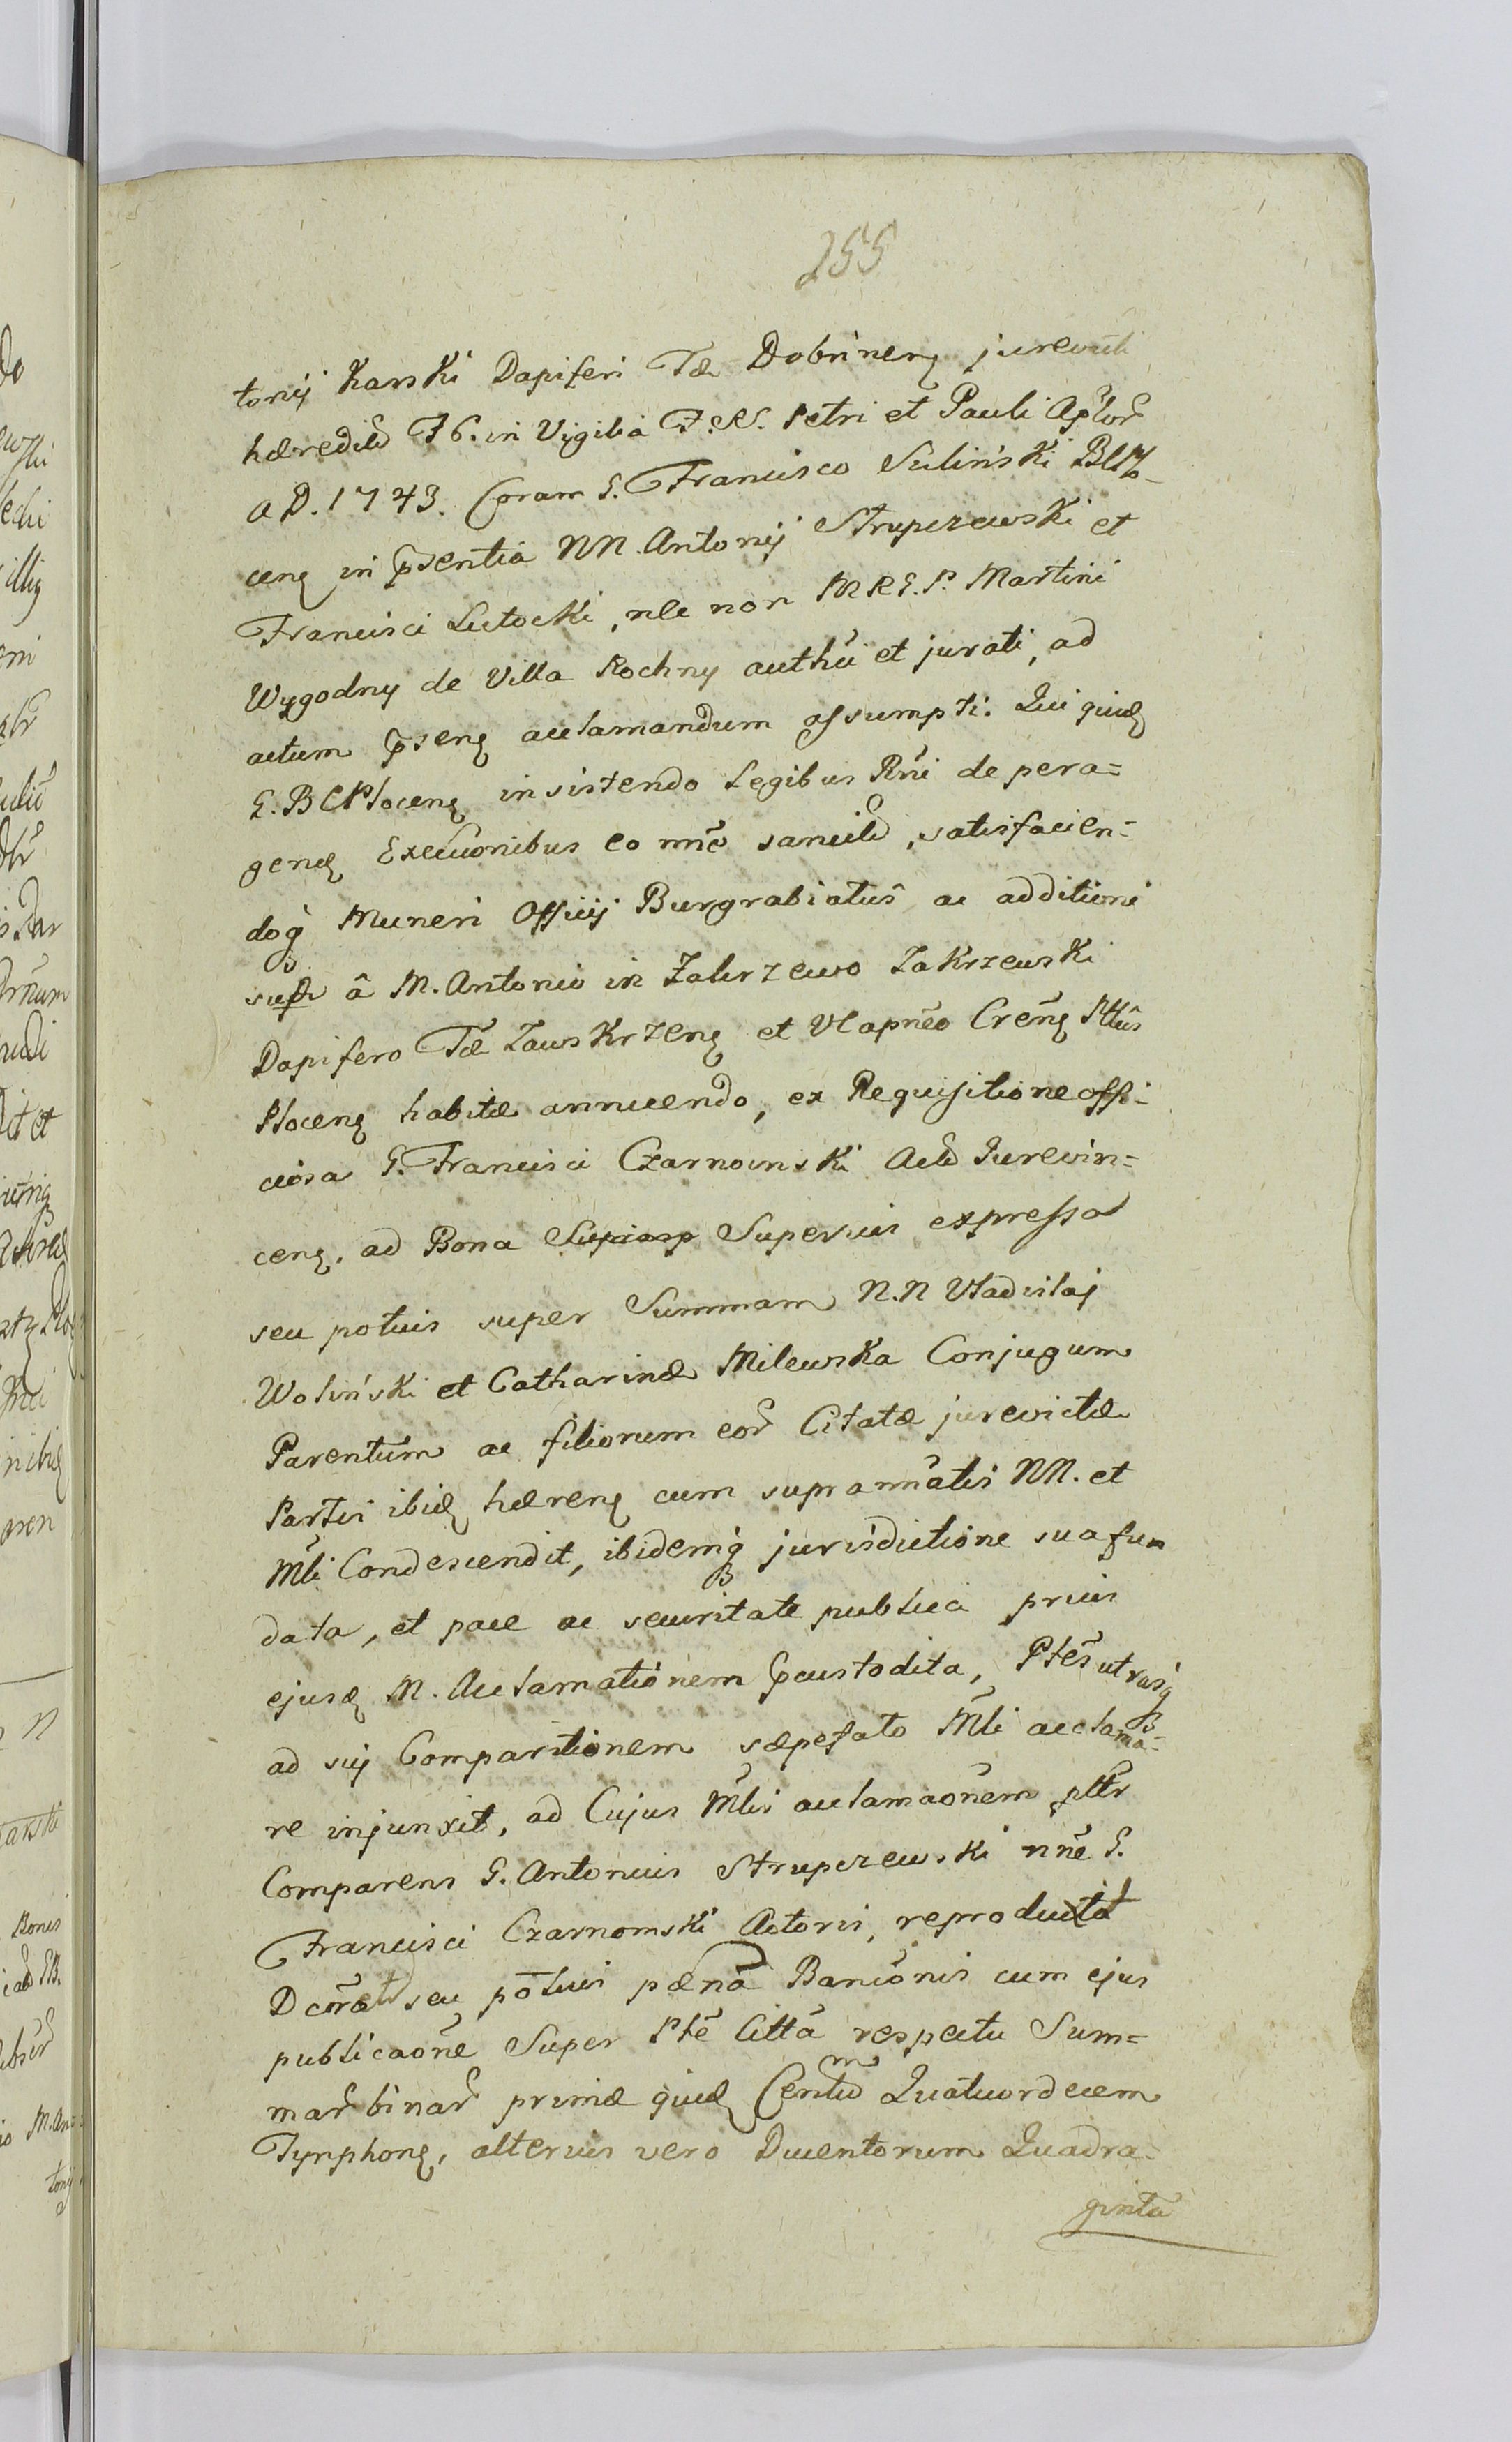 255
tonij Karski Dapiferi Tæ Dobrineñ jurevicti
hæredita F6. in Vigilia F.S. Petri et Pauli Aplor
A D. 1743. Coram G. Francisco Suliński BCPło-
cen in psentia NN. Antonij Strupczewski et
Francisci Lutocki, nec non MRG.P. Martini
Wygodny de Villa Rochny authci et jurati, ad
actum psens acclamandum assumpti. Qui quid
G. BCPlocen insistendo Legibus Rñi de pera=
gen Execuonibus eo nnē sancit, satisfacien=
doq Muneri Officij Burgrabiatus ac additioni
sup à M. Antonio in Zakrzewo Zakrzewski
Dapifero Tæ Zawskrzen et Vcapneo Cren Pttus
Plocen habitæ annuendo, ex Requisitione offi-
ciosa G. Francisci Czarnomski Act Jurevin=
cen. ad Bona Superius expressa
seu potius super Summam N.N Vladislaj
Woliński et Catharinæ Milewska Conjugum
Parentum ac filiorum eor Citatæ jurevictæ
Partis ibid hæren cum suprannatis NN. et
Mli Condescendit, ibidemq jurisdictione sua fun
data, et pace ac securitate publica prius
ejusd M. Acclamationem pcustodita, Ptes utrasq
ad sui Comparitionem sæpefato Mli acclama=
re injunxit, ad Cujus Mlis acclamaonem pttr
Comparens G. Antonius Strupczewski nne G.
Francisci Czarnomski Actoris, reproducta
Dcreto seu potius pæna Banionis cum ejus
publicaone Super Pte Citta respectu Sum=
mar binar primæ quid Centu Quatuordecem
Tynphon, alterius vero Ducentorum Quadra=
ginta